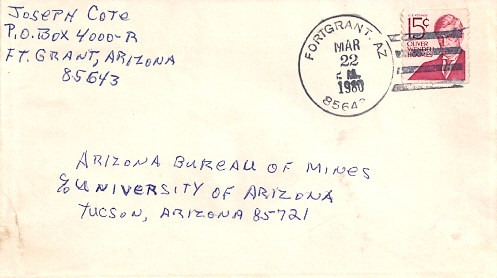 Joseph Cote
P.O. Box 4000-R
Ft. Grant, Arizona
85643
FORT GRANT, AZ
MAR
22
1980
85643
15¢
OLIVER
WENDELL
HOLMES
Arizona Bureau of Mines
c/o University of Arizona
Tucson, Arizona 85721